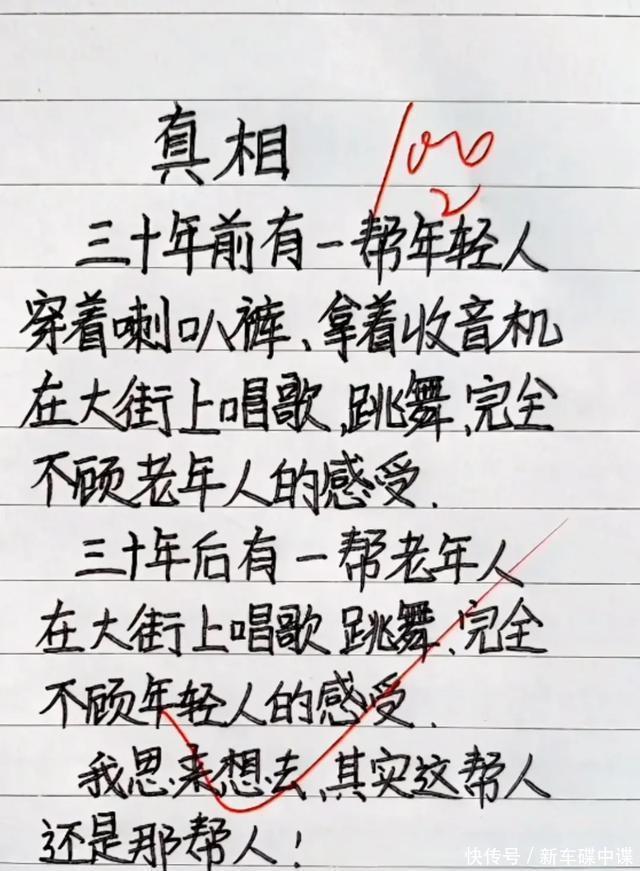 真相
100
2
三十年前有一帮年轻人
穿着喇叭裤、拿着收音机
在大街上唱歌、跳舞、完全
不顾老年人的感受.
三十年后有一帮老年人
在大街上唱歌 跳舞、完全
不顾年轻人的感受.
我思来想去、其实这帮人
还是那帮人!
快传号/新车碟中谍